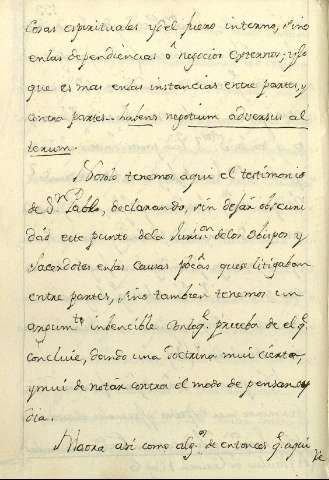 Cosas espirituales y del fuero interno, sino
en las dependiencias o negocios externos; y lo
que es mas en las instancias entre partes, y
contra partes habens negotium adversus al
terum.
No solo tenemos aqui el testimonio
de Sn. Pablo, declarando, sin dejar obscuri
dad este punto de la Jurisn. de los Obispos y
Sacerdotes en las Causas que se litigaban
entre partes, sino tambien tenemos un
argumto. inbencible con lo q. prueba de el q.
concluie, dando una doctrina mui cierta,
y mui de notar contra el modo de pensar oy
dia.
Ahora asi como alg.s de entonces q. aqui